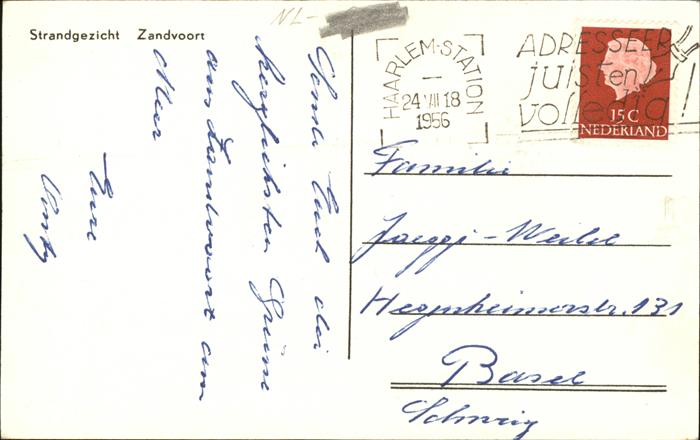 NL-
Strandgezicht Zandvoort
HAARLEM-STATION
24 VII 18
1956
ADRESSEER
juist en
volledig!
15C
NEDERLAND
Sende Euch die
herzlichsten Grüsse
aus Zandvoort am
Meer
Eure
Familie
Jaeggi-Weibel
Hegenheimerstr. 131
Basel
Schweiz